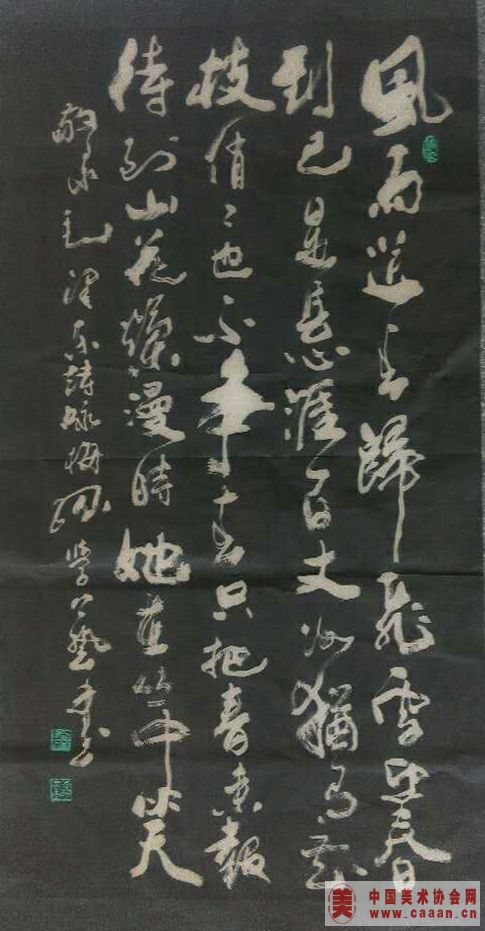 風雨送春歸飛雪迎春
到已是懸崖百丈冰猶有花
枝俏〻也不争春只把春来報
待到山花爛漫時她在丛中笑
敬录毛澤东詩咏梅 学艺书
美 中国美术协会网
www.caaan.cn